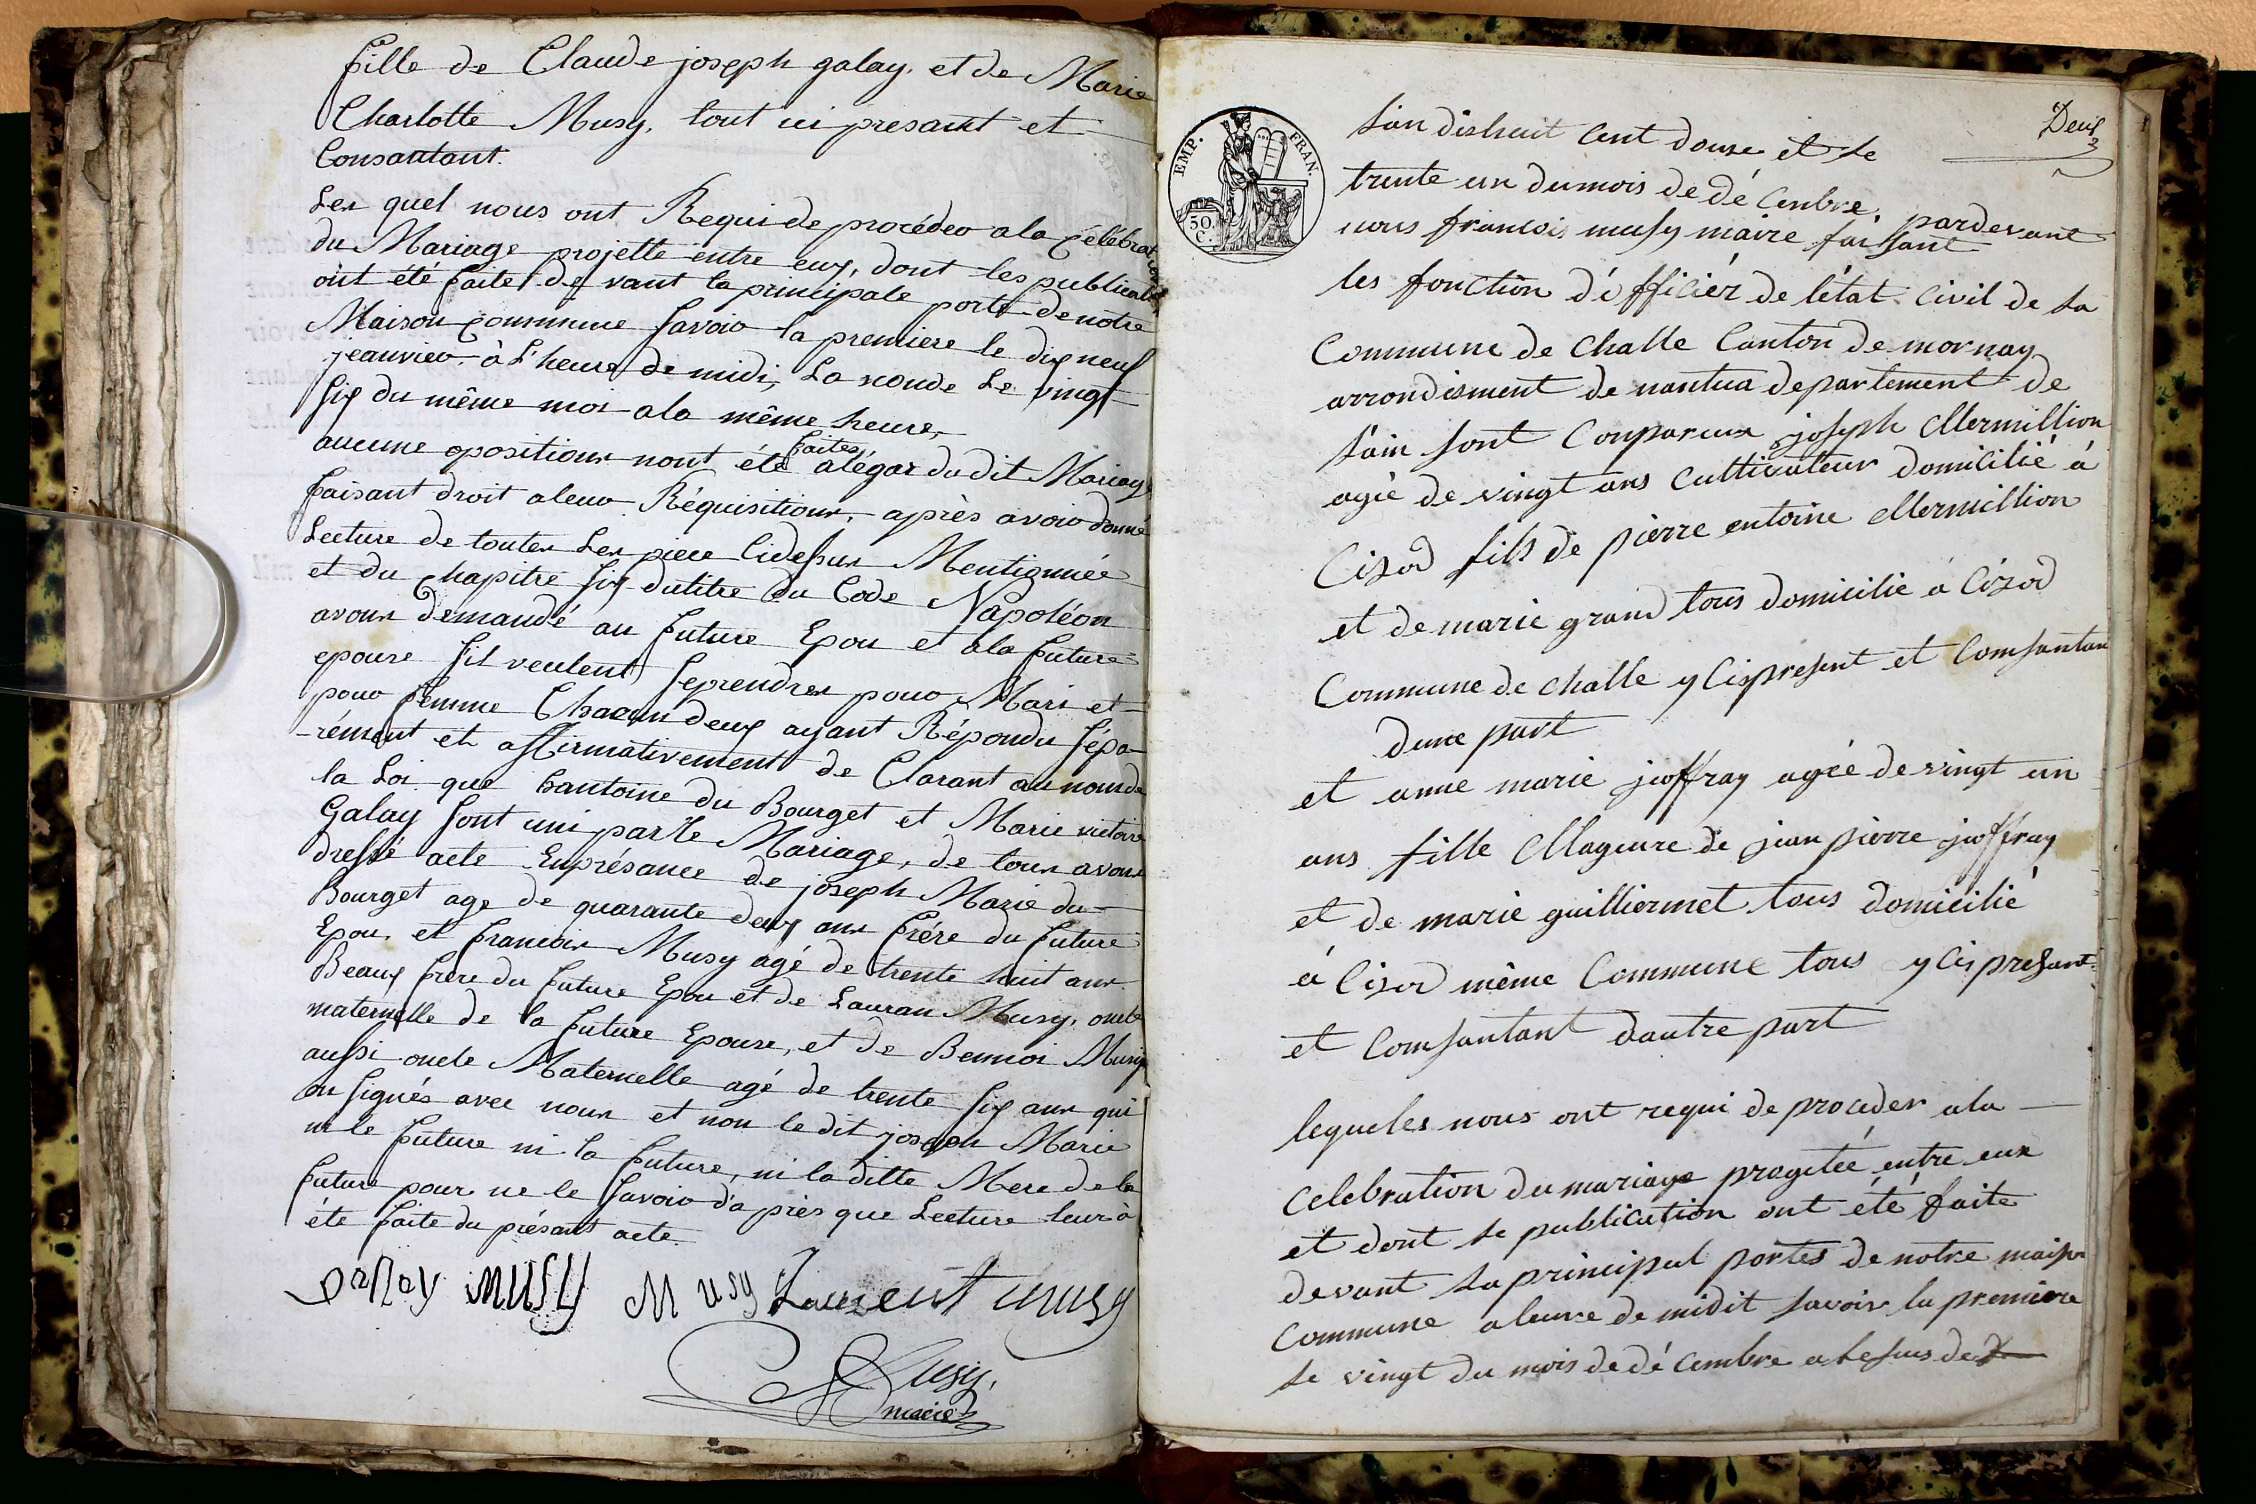 fille de Claude joseph galay. et de Marie
Charlotte Musy. tout ici presant et
Consantant.
Les quel nous ont Requi de procédeo a la Célébration
du Mariage projetté entre eux, dont les publications
ont été faites de vant la principale porte de notre
Maison Commune Savoio la premiere le dix neuf
jeanvieo à L'heure de midi, La sconde Le vingt
six du même moi a la même heure,
aucune opositions nont été faites a légar du dit Mariage
faisant droit a leuo Réquisitions, après avoio donné
Lecture de toutes Les piece Cidessus Mentionnée
et du Chapitre six du titre du Code Napoléon
avons demandé au future Epou et a la future
epouse sil veulent se prendres pouo Mari et
pouo femme Chacun deux ayant Répondu sépa-
-rément et affirmativement de Clarant au nom de
la Loi que hantoine du Bourget et Marie victoire
Galay sont uni par le Mariage, de tous avons
dressé acte Enprésance de joseph Marie du
Bourget age de quarante deux ans frére du future
Epou. et francois Musy agé de trente huit ans
Beaux frere du future Epou et de Lauran Musy, oncle
maternelle de la future Epouse, et de Bennoi Musy
aussi oncle Maternelle agé de trente six ans qui
on signés avec nous et non le dit joseph Marie
ni le future ni la future, ni la ditte Mere de la
future pour ne le savoio d'a près que Lecture leur à
éte faite du présant acte.
Musy M usy Laurent musy
Musy,
maire
EMP. FRAN.
50 C.
Deux
2
l'an dishuit cent douze et le
trente un du mois de dé cenbre, pardevant
nous francois musy maire faisant
les fonction d'officiér de l'état civil de la
commune de challe canton de mornay
arrondisment de nantua departement de
l'ain sont conparus joseph Mermillion
agé de vingt ans cultivateur domicilié à
Cizod fils de pierre entoine Mermillion
et de marie grand tous domicilié à Cizod
Commune de challe y Ci present et comsantan
dune part
et anne marie juffray agée de vingt un
ans fille Mageure de jean pierre juffray
et de marie guilliermet tous domicilié
à Cizod même Commune tous y Ci presant
et comsantant dautre part
lequeles nous ont requi de proceder a la
celebration du mariage progetée entre eux
et dont le publication ont été faite
devant la principal portes de notre maison
commune a leure de midit savoir la premiere
le vingt du mois de dé cembre